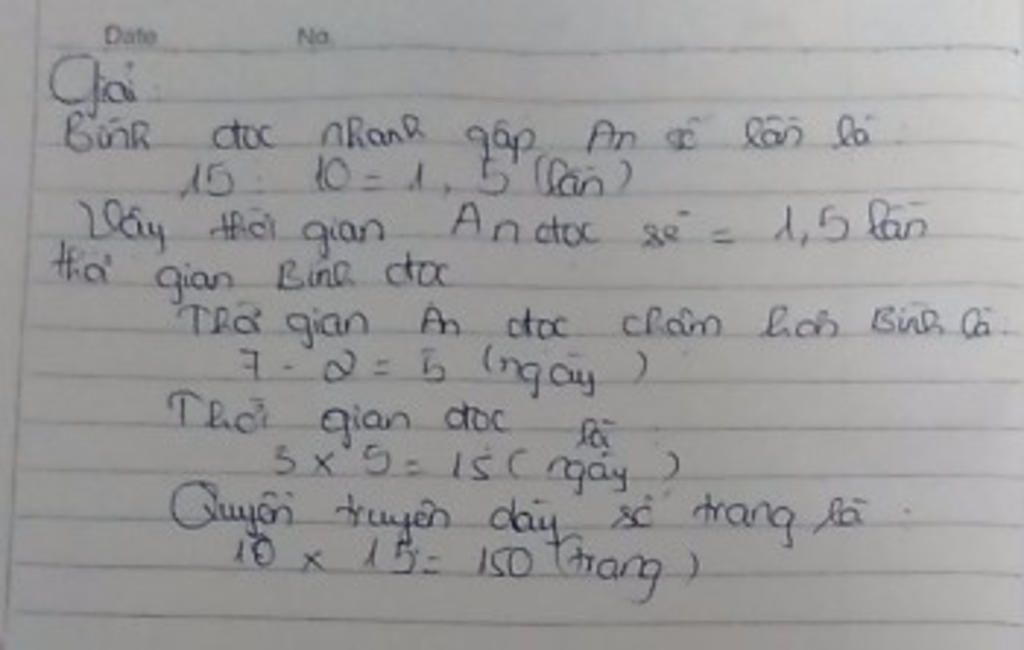 Date No
Giải:
Bình đọc nhanh gấp An số lần là
15 : 10 = 1,5 (lần)
Vậy thời gian An đọc sẽ = 1,5 lần
thời gian Bình đọc
Thời gian An đọc chậm hơn Bình là
7 - 2 = 5 (ngày)
Thời gian đọc là
3 x 5 = 15 (ngày)
Quyển truyện dày số trang là:
10 x 15 = 150 (trang)